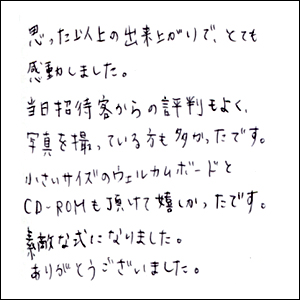 思った以上の出来上がりで、とても
感動しました。
当日招待客からの評判もよく、
写真を撮っている方も多かったです。
小さいサイズのウェルカムボードと
CD-ROMも頂けて嬉しかったです。
素敵な式になりました。
ありがとうございました。